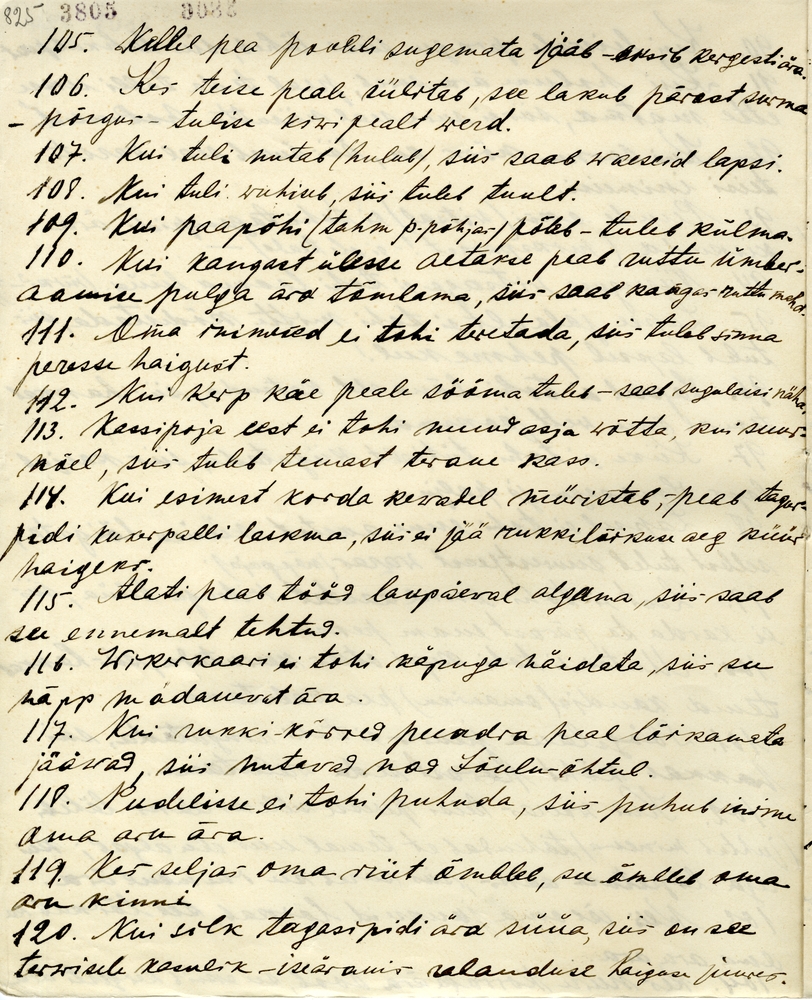 825 3805 9082
105. Kellel pea pooleli sugemata jääb - eksib kergesti ära.
106. Kes teise peale sülitab, see lakub pärast surma
- põrgus - tulise kiwi pealt werd.
107. Kui tuli nutab (hulub), siis saab waeseid lapsi.
108. Kui tuli wuhiseb, siis tuleb tuult.
109. Kui paapõhi (tahm p.põhjas) põleb - tuleb külma.
110. Kui kangast ülesse aetakse peab ruttu ümber-
aamise pulga ära tõmbama, siis saab kangas ruttu maha.
111. Oma inimesed ei tohi teretada, siis tuleb sinna
peresse haigust.
112. Kui kerp käe peale sööma tuleb - saab sugulaisi näha.
113. Kassipoja eest ei tohi muud asja wõtta, kui suur-
nõel, siis tuleb temast terane kass.
114. Kui esimest korda kewadel müristab, - peab tagur-
pidi kukerpalli laskma, siis ei jää rukkilõikuse aeg küür
haigeks.
115. Alati peab tööd laupäewal algama, siis saab
see ennemalt tehtud.
116. Wikerkaari ei tohi näpuga näidata, siis see
näpp mädanewat ära.
117. Kui rukki-kõrred peendra peal lõikamata
jääwad, siis nutawad nad Jõulu-õhtul.
118. Pudelisse ei tohi puhuda, siis puhub inime
oma aru ära.
119. Kes seljas oma riiet õmbleb, see õmbleb oma
aru kinni
120. Kui silk tagasipidi ära süüa, siis on see
terwisele kasulik - iseäranis halanduse haiguse juures.